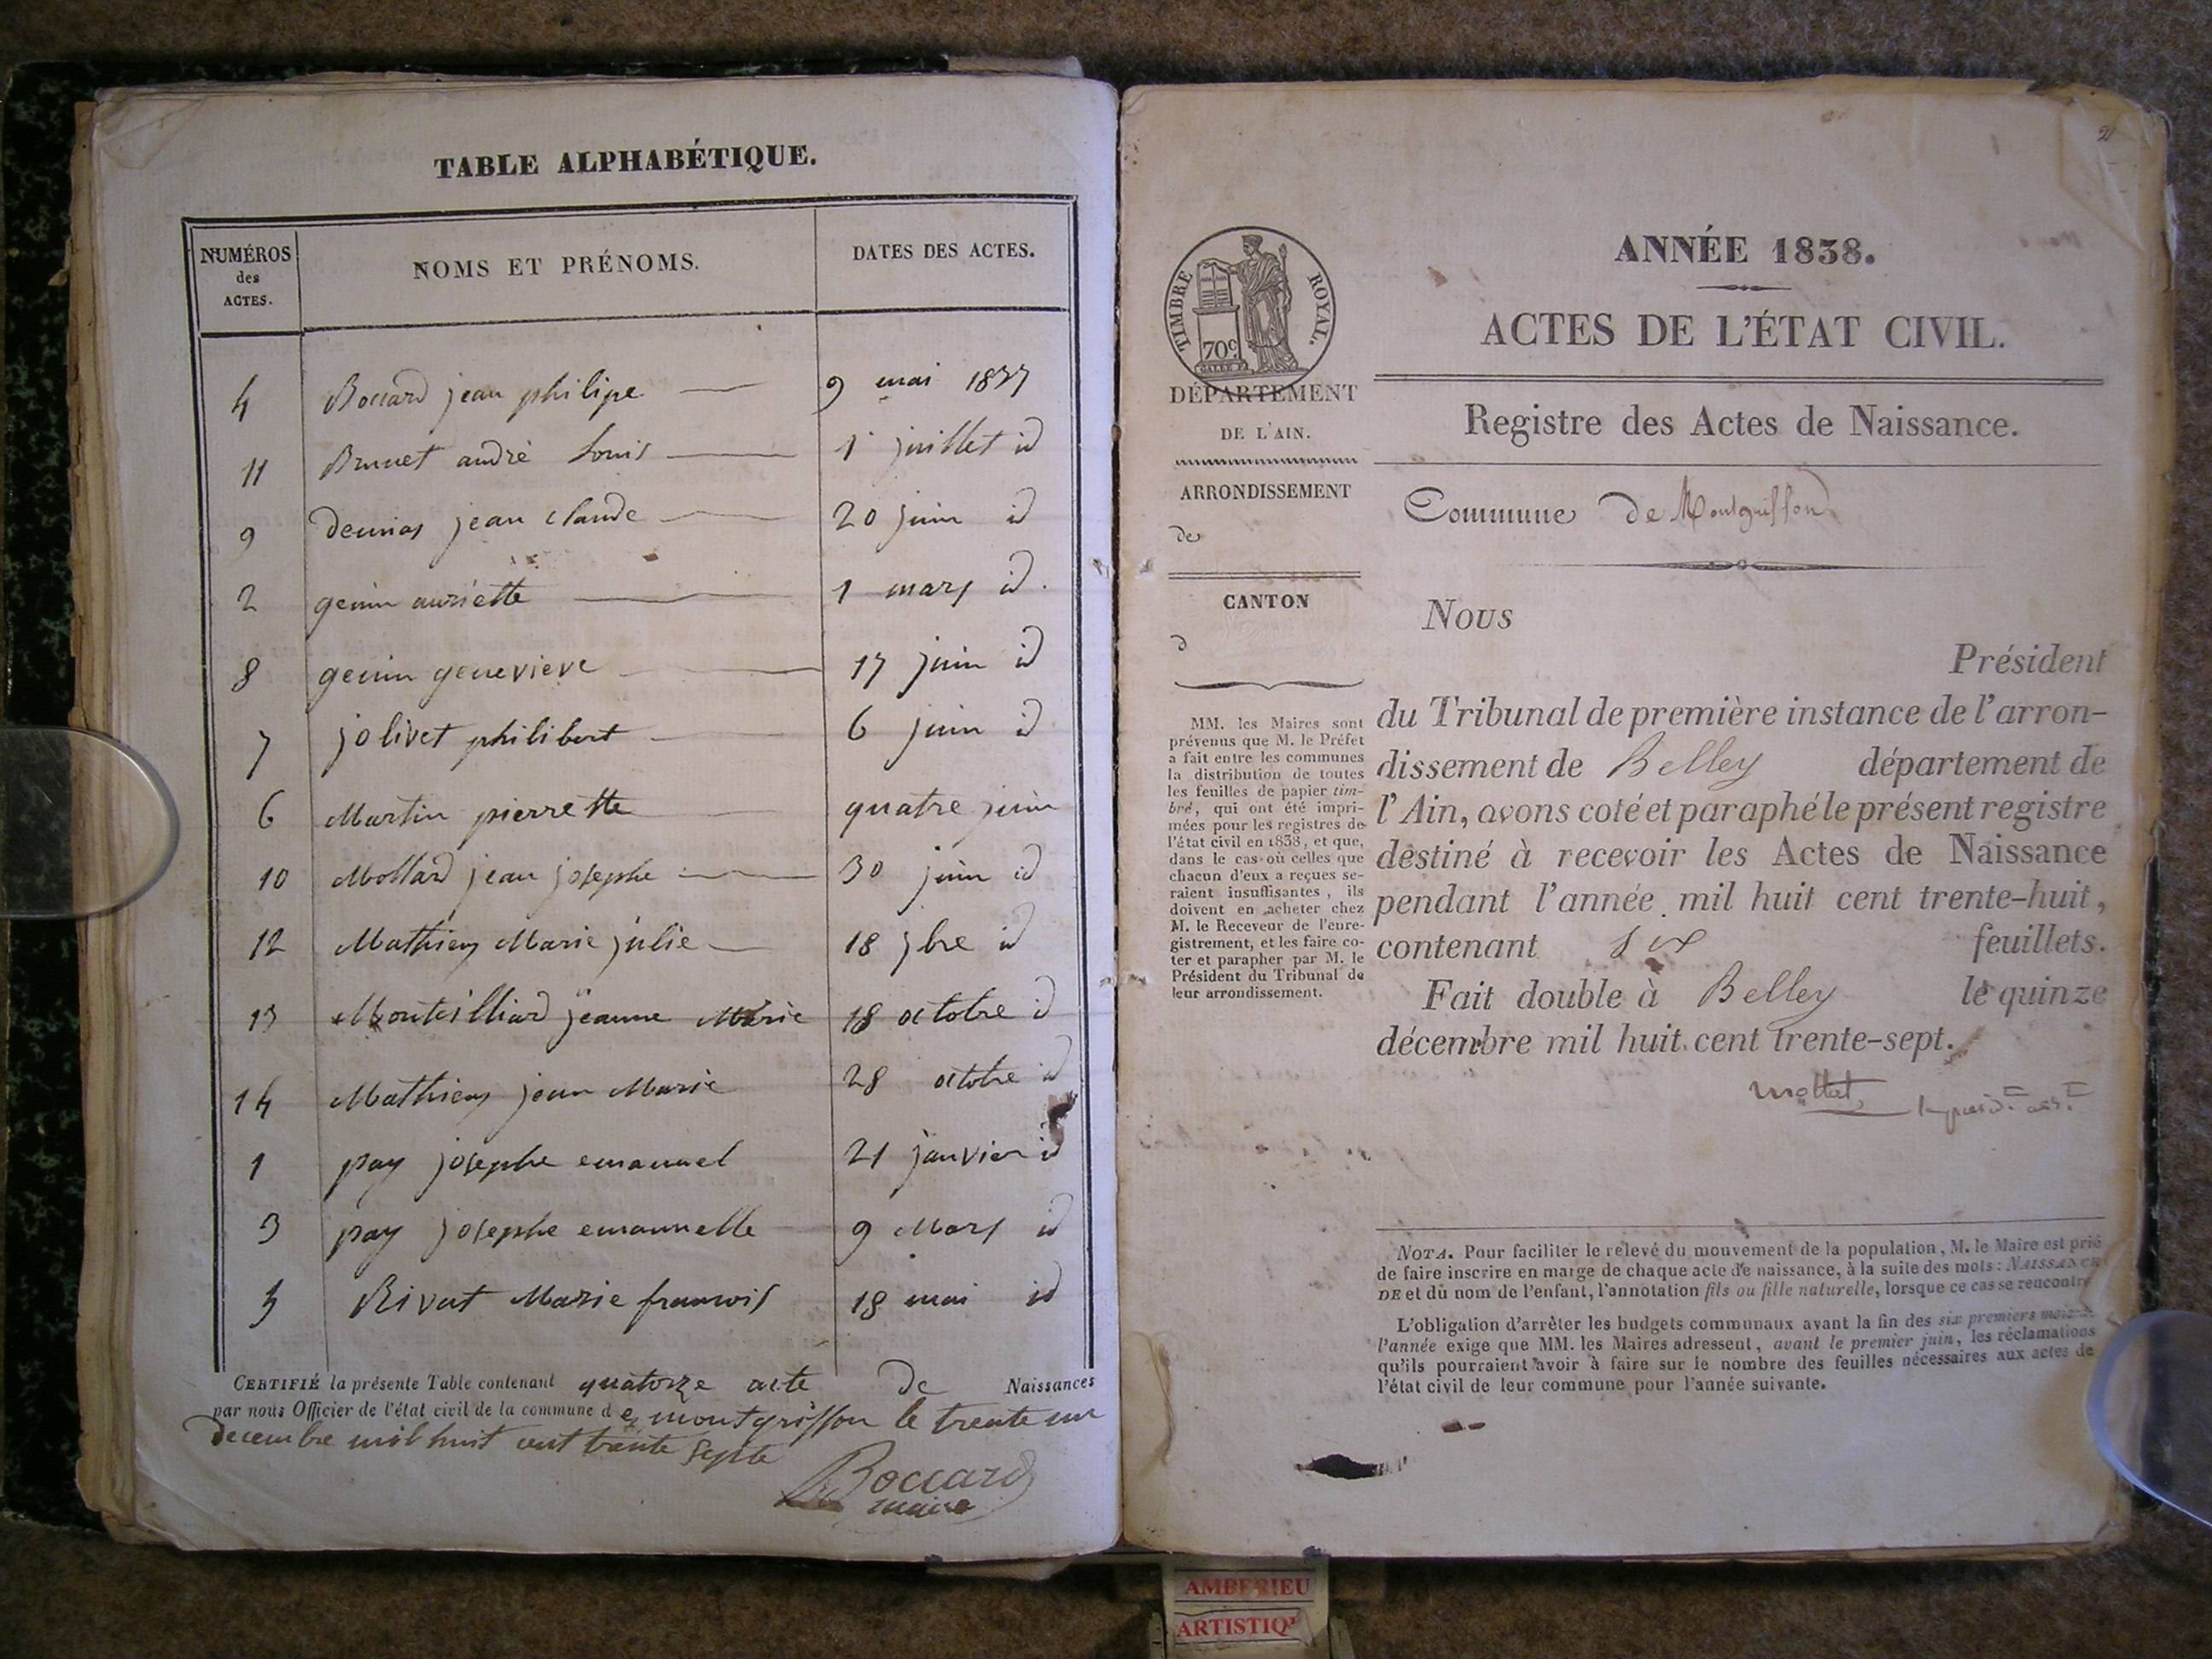 TABLE ALPHABÉTIQUE.
NUMÉROS des ACTES. NOMS ET PRÉNOMS. DATES DES ACTES.
4 Boccard jean philipe 9 mai 1837
11 Brunet andrè Louis 1 juillet id
9 jean Claude 20 juin id
2 genin auriette 1 mars id.
8 genin genevieve 17 juin id
7 jolivet philibert 6 juin id
6 Martin pierrette quatre juin
10 Mollard jean josephe 30 juin id
12 Mathieu Marie julie 18 7bre id
13 Monteilliard jeanne Marie 18 octobre id
14 Mathieu jean Marie 28 octobre id
1 pay josephe emanuel 21 janvier id
3 pay josephe emanuelle 9 Mars id
5 Rivat Marie francois 18 mai id
CERTIFIÉ la présente Table contenant quatorze acte de Naissances
par nous Officier de l'état civil de la commune de montgriffon le trente un
decembre mil huit cent trente septe
Boccard
maire
ANNÉE 1838.
ACTES DE L'ÉTAT CIVIL.
Registre des Actes de Naissance.
Commune de Montgriffond
TIMBRE ROYAL.
70c
DÉPARTEMENT
DE L'AIN.
ARRONDISSEMENT
de
CANTON
d
MM. les Maires sont
prévenus que M. le Préfet
a fait entre les communes
la distribution de toutes
les feuilles de papier tim-
bré, qui ont été impri-
mées pour les registres de
l'état civil en 1838, et que,
dans le cas où celles que
chacun d'eux a reçues se-
raient insuffisantes, ils
doivent en acheter chez
M. le Receveur de l'enre-
gistrement, et les faire co-
ter et parapher par M. le
Président du Tribunal de
leur arrondissement.
Nous
Président
du Tribunal de première instance de l'arron-
dissement de Belley département de
l'Ain, avons coté et paraphé le présent registre
destiné à recevoir les Actes de Naissance
pendant l'année mil huit cent trente-huit,
contenant six feuillets.
Fait double à Belley le quinze
décembre mil huit cent trente-sept.
NOTA. Pour faciliter le relevé du mouvement de la population, M. le Maire est prié
de faire inscrire en marge de chaque acte de naissance, à la suite des mots : NAISSANCE
DE et du nom de l'enfant, l'annotation fils ou fille naturelle, lorsque ce cas se rencontre
L'obligation d'arrêter les budgets communaux avant la fin des six premiers mois de
l'année exige que MM. les Maires adressent, avant le premier juin, les réclamations
qu'ils pourraient avoir à faire sur le nombre des feuilles nécessaires aux actes de
l'état civil de leur commune pour l'année suivante.
AMBERIEU
ARTISTIQU